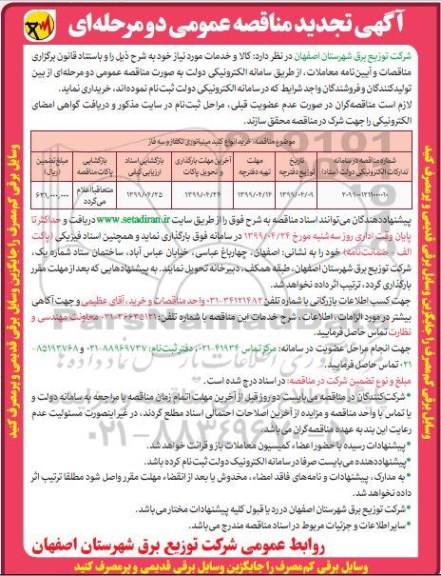 آگهی تجدید مناقصه عمومی دو مرحله‌ای
شرکت توزیع برق شهرستان اصفهان در نظر دارد: کالا و خدمات مورد نیاز خود به شرح ذیل را و باستناد قانون برگزاری
مناقصات و آیین‌نامه معاملات، از طریق سامانه الکترونیکی دولت به صورت مناقصه عمومی دو مرحله‌ای از بین
تولیدکنندگان و فروشندگان واجد شرایط که در سامانه الکترونیکی دولت ثبت‌نام نموده‌اند، خریداری نماید.
لازم است مناقصه‌گران در صورت عدم عضویت قبلی، مراحل ثبت‌نام در سایت مذکور و دریافت گواهی امضای
الکترونیکی را جهت شرک در مناقصه محقق سازند.
موضوع مناقصه: خرید انواع کلید مینیاتوری تکفاز و سه فاز
شماره مناقصه در سامانه تدارکات الکترونیکی دولت (ستاد) تاریخ توزیع دفترچه مهلت تهیه دفترچه آخرین مهلت بارگذاری و تحویل پاکات بازگشایی اسناد ارزیابی کیفی بازگشایی پاکات مناقصه مبلغ تضمین (ریال)
۱۳۹۹/۰۴/۰۹ ۱۳۹۹/۰۴/۱۴ ۱۳۹۹/۰۴/۲۴ ۱۳۹۹/۰۴/۲۵ متعاقبا اعلام می‌گردد ۶۳۱,۰۰۰,۰۰۰
پیشنهاددهندگان می‌توانند اسناد مناقصه به شرح فوق را از طریق سایت www.setadiran.ir دریافت و حداکثر تا
پایان وقت اداری روز سه‌شنبه مورخ ۱۳۹۹/۰۴/۲۴ در سامانه فوق بارگذاری نماید و همچنین اسناد فیزیکی (پاکت
الف - ضمانت‌نامه) خود را به نشانی: اصفهان، چهارباغ عباسی، خیابان عباس آباد، ساختمان ستاد شماره یک،
شرکت توزیع برق شهرستان اصفهان، طبقه همکف، دبیرخانه تحویل نمایند. به پیشنهادهایی که بعد از مهلت مقرر
بارگزاری گردد، ترتیب اثر داده نخواهد شد.
جهت کسب اطلاعات بازرگانی با شماره تلفن ۳۴۱۲۱۴۸۲-۰۳۱ واحد مناقصات و خرید، آقای عظیمی و جهت آگاهی
بیشتر در مورد الزامات، اطلاعات، شرح خدمات این مناقصه با شماره تلفن: ۳۶۶۳۵۱۳۱-۰۳۱ معاونت مهندسی و
نظارت تماس حاصل فرمایید.
جهت انجام مراحل عضویت در سامانه: مرکز تماس ۴۱۹۳۴-۰۲۱، دفتر ثبت‌نام: ۸۸۹۶۹۷۳۷-۰۲۱ و ۸۵۱۹۳۷۶۸-
۰۲۱ تماس حاصل فرمایید.
مبلغ و نوع تضمین شرکت در مناقصه: در اسناد درج شده است.
شرکت‌کنندگان در مناقصه می‌بایست دو روز قبل از آخرین مهلت اتمام زمان مناقصه با مراجعه به سامانه دولت و
یا تماس با واحد مناقصه و مزایده از آخرین اصلاحات احتمالی اسناد مطلع گردند، در غیر اینصورت مسئولیت عدم
رعایت این بند به عهده مناقصه‌گران می‌باشد.
پیشنهادات رسیده با حضور اعضاء کمیسیون معاملات باز و قرائت خواهد شد.
پیشنهاددهنده می‌بایست صرفا در سامانه الکترونیک دولت ثبت‌نام کرده باشد.
به مدارک، پیشنهادات و نامه‌های فاقد امضاء، مخدوش یا بعد از انقضاء مهلت مقرر واصل شود مطلقا ترتیب اثر
داده نخواهد شد.
شرکت توزیع برق شهرستان اصفهان در رد یا قبول کلیه پیشنهادات مختار می‌باشد.
سایر اطلاعات و جزئیات مربوط در اسناد مناقصه مندرج می‌باشد.
روابط عمومی شرکت توزیع برق شهرستان اصفهان
وسایل برقی کم‌مصرف را جایگزین وسایل برقی قدیمی و پرمصرف کنید
وسایل برقی کم‌مصرف را جایگزین وسایل برقی قدیمی و پرمصرف کنید
وسایل برقی کم‌مصرف را جایگزین وسایل برقی قدیمی و پرمصرف کنید